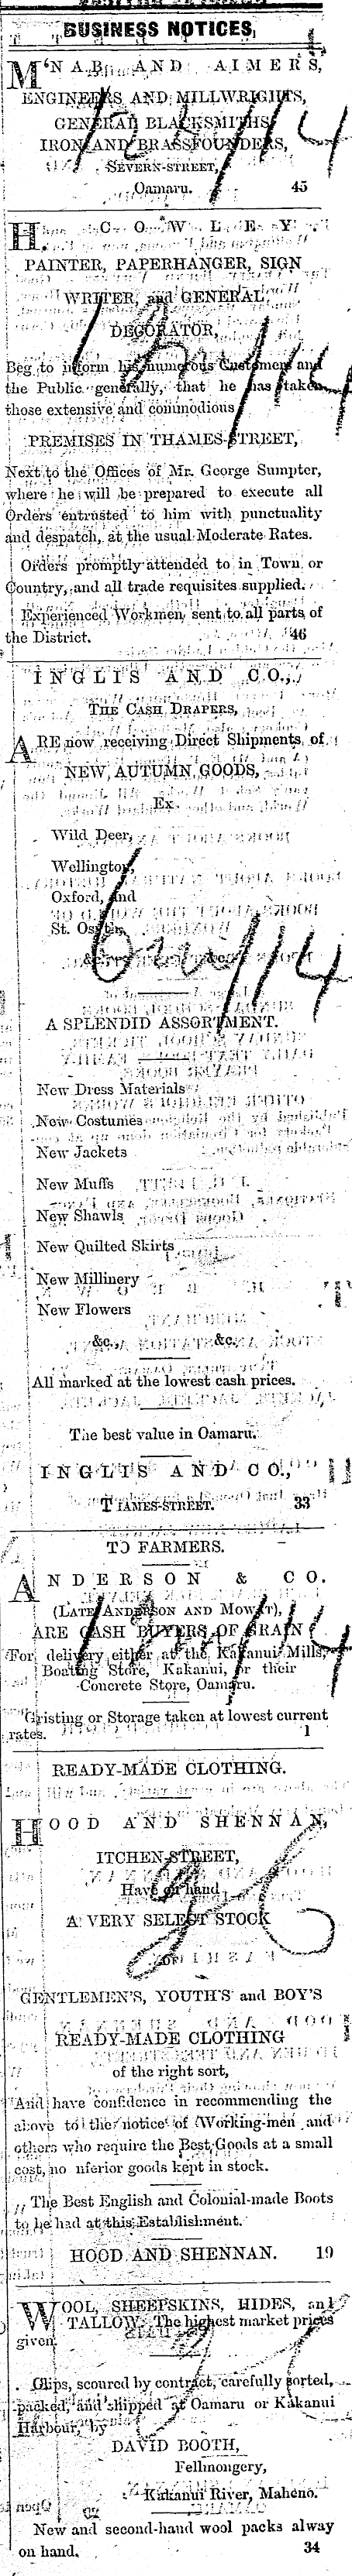 BUSINESS NOTICES,
M'NAB AND AIMERS,
ENGINEERS AND MILLWRIGHTS,
GENERAL BLACKSMITHS
IRON AND BRASSFOUNDERS,
SEVERN-STREET,
Oamaru. 45
H. COWLEY.
PAINTER, PAPERHANGER, SIGN
WRITER, and GENERAL
DECORATOR,
Beg to inform his numerous Customers and
the Public generally, that he has taken
those extensive and commodious
PREMISES IN THAMES-STREET,
Next to the Offices of Mr. George Sumpter,
where he will be prepared to execute all
Orders entrusted to him with punctuality
and despatch, at the usual Moderate Rates.
Orders promptly attended to in Town or
Country, and all trade requisites supplied.
Experienced Workmen sent to all parts of
the District. 46
INGLIS AND CO.,
THE CASH DRAPERS,
ARE now receiving Direct Shipments of
NEW AUTUMN GOODS,
Ex
Wild Deer,
Wellington,
Oxford, and
St. Osyth,
&c. &c.
A SPLENDID ASSORTMENT.
New Dress Materials
New Costumes
New Jackets
New Muffs
New Shawls
New Quilted Skirts
New Millinery
New Flowers
&c. &c.
All marked at the lowest cash prices.
The best value in Oamaru.
INGLIS AND CO.,
THAMES-STREET. 33
TO FARMERS.
ANDERSON & CO.
(LATE ANDERSON AND MOWAT),
ARE CASH BUYERS OF GRAIN
For delivery either at the Kakanui Mills,
Boating Store, Kakanui, or their
Concrete Store, Oamaru.
Gristing or Storage taken at lowest current
rates. 1
READY-MADE CLOTHING.
HOOD AND SHENNAN,
ITCHEN-STREET,
Have on hand
A VERY SELECT STOCK
OF
GENTLEMEN'S, YOUTH'S and BOY'S
READY-MADE CLOTHING
of the right sort,
And have confidence in recommending the
above to the notice of Working-men and
others who require the Best Goods at a small
cost, no nferior goods kept in stock.
The Best English and Colonial-made Boots
to be had at this Establishment.
HOOD AND SHENNAN. 19
WOOL, SHEEPSKINS, HIDES, and
TALLOW. The highest market prices
given.
Clips, scoured by contract, carefully sorted,
packed, and shipped at Oamaru or Kakanui
Harbour, by
DAVID BOOTH,
Fellmongery,
Kakanui River, Maheno.
New and second-hand wool packs alway
on hand. 34